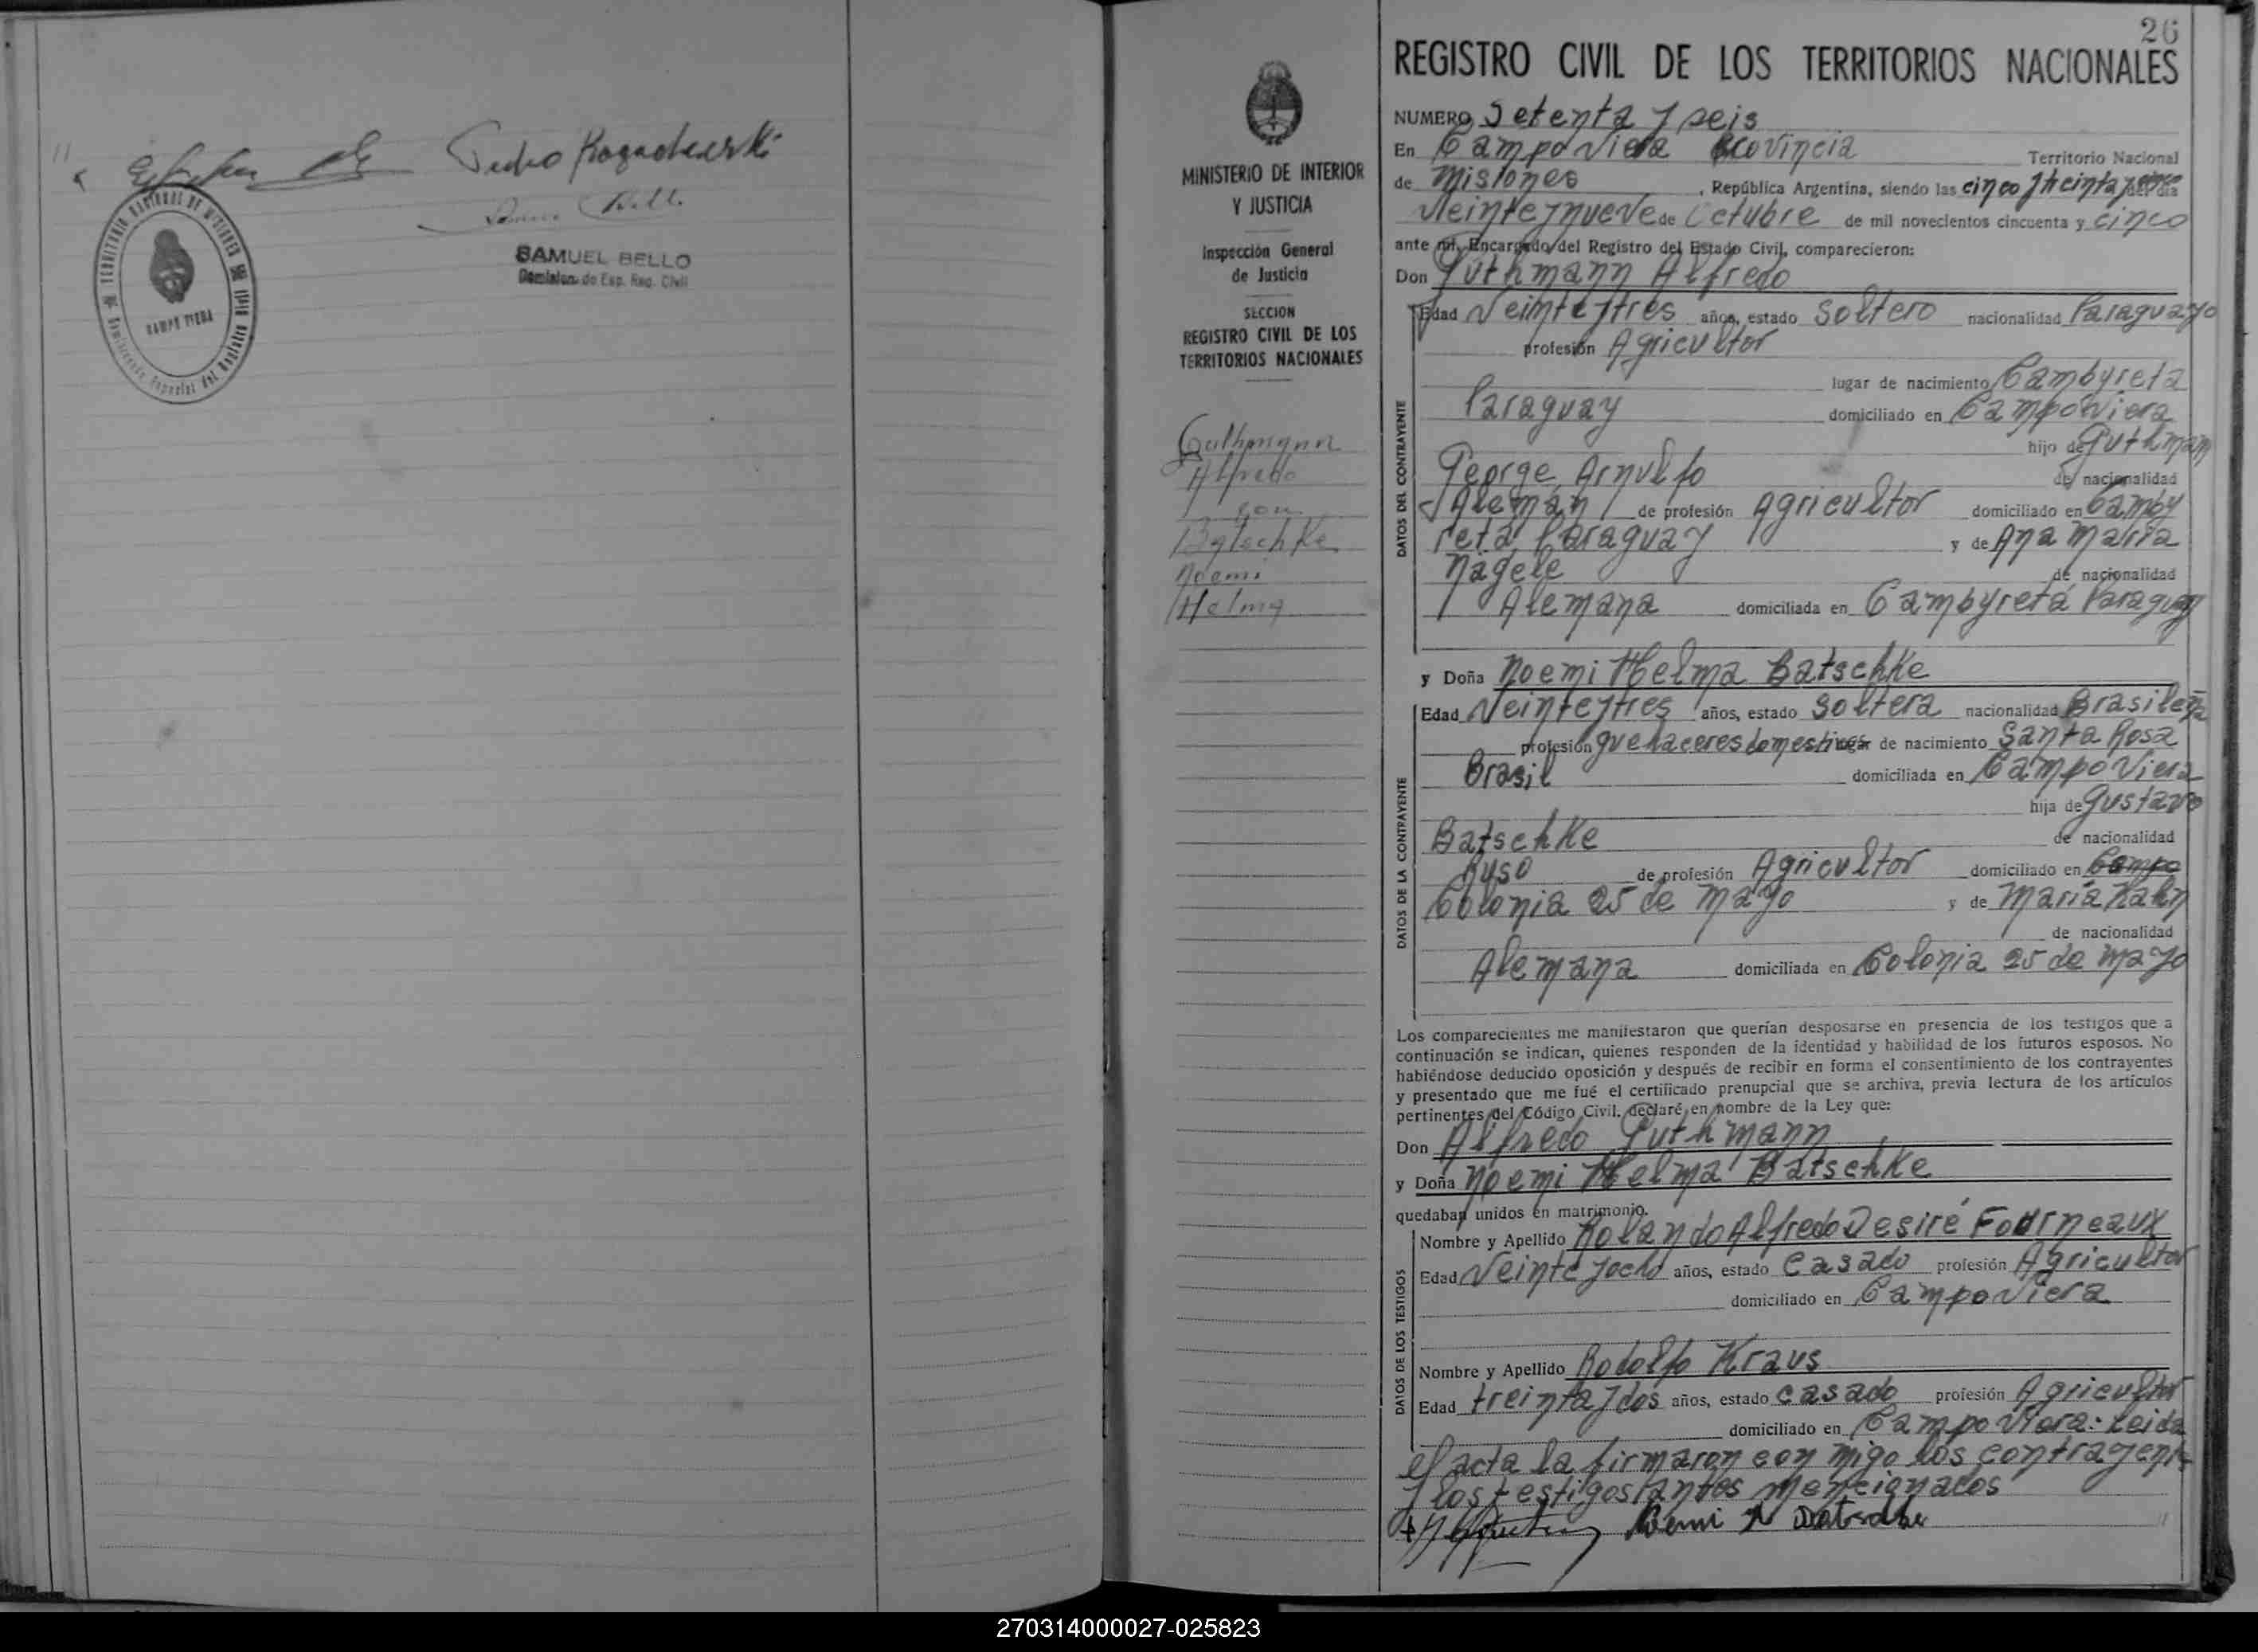 Pedro
SAMUEL BELLO
de Esp. Reg. Civil
TERRITORIO NACIONAL DE MISIONES
CAMPO VIERA
26
MINISTERIO DE INTERIOR
Y JUSTICIA
Inspección General
de Justicia
SECCION
REGISTRO CIVIL DE LOS
TERRITORIOS NACIONALES
Guthmann
Alfredo
con
Batschke
Noemi
Helma
REGISTRO CIVIL DE LOS TERRITORIOS NACIONALES
NUMERO Setenta y seis
En Campo Viera Provincia Territorio Nacional
de Misiones, República Argentina, siendo las cinco y treinta y cinco del día
Veinte y nueve de Octubre de mil novecientos cincuenta y cinco
ante mí, Encargado del Registro del Estado Civil, comparecieron:
Don Guthmann Alfredo
DATOS DEL CONTRAYENTE
Edad Veinte y tres años, estado Soltero nacionalidad Paraguayo
profesión Agricultor
lugar de nacimiento Cambyreta
Paraguay domiciliado en Campo Viera
hijo de Guthmam
George Arnulfo de nacionalidad
Alemán de profesión Agricultor domiciliado en Camby
retá Paraguay y de Ana Maria
Nägele de nacionalidad
Alemana domiciliada en Cambyretá Paraguay
y Doña Noemi Helma Batschke
DATOS DE LA CONTRAYENTE
Edad Veinte y tres años, estado Soltera nacionalidad Brasileña
profesión quehaceres domesticos lugar de nacimiento Santa Rosa
Brasil domiciliada en Campo Viera
hija de Gustavo
Batschke de nacionalidad
Ruso de profesión Agricultor domiciliado en Campo
Colonia 25 de Mayo y de Maria Hahn
de nacionalidad
Alemana domiciliada en Colonia 25 de Mayo
Los comparecientes me manifestaron que querían desposarse en presencia de los testigos que a
continuación se indican, quienes responden de la identidad y habilidad de los futuros esposos. No
habiéndose deducido oposición y después de recibir en forma el consentimiento de los contrayentes
y presentado que me fué el certificado prenupcial que se archiva, previa lectura de los artículos
pertinentes del Código Civil, declaré en nombre de la Ley que:
Don Alfredo Guthmann
y Doña Noemi Helma Batschke
quedaban unidos en matrimonio.
DATOS DE LOS TESTIGOS
Nombre y Apellido Rolando Alfredo Desiré Fourneaux
Edad Veinte y ocho años, estado Casado profesión Agricultor
domiciliado en Campo Viera
Nombre y Apellido Rodolfo Kraus
Edad treinta y dos años, estado casado profesión Agricultor
domiciliado en Campo Viera: Leida
el acta la firmaron con migo los contrayent
y los testigos antes mencionados
270314000027-025823